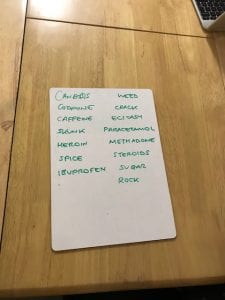 CANABIS WEED
CODEINE CRACK
CAFFEINE ECSTASY
SKUNK PARACETAMOL
HEROIN METHADONE
SPICE STEROIDS
IBUPROFEN SUGAR
ROCK